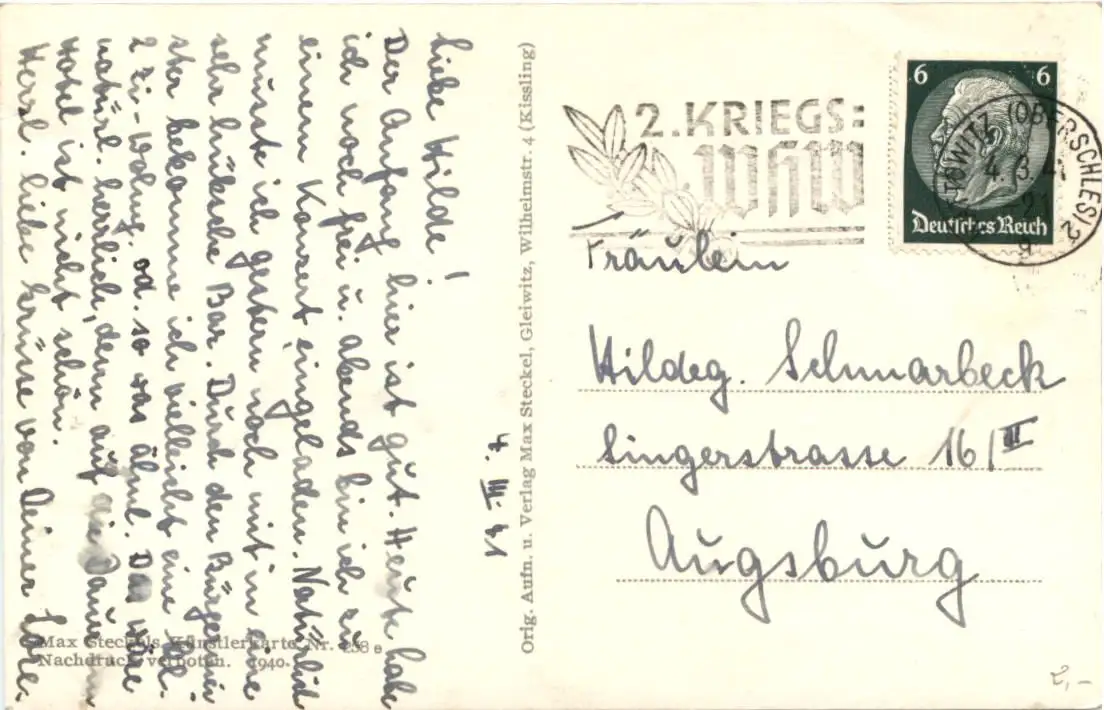 4. III. 41
Liebe Hilde!
Der Anfang hier ist gut. Heute habe
ich noch frei u. abends bin ich zu
einem Konzert eingeladen. Natürlich
musste ich gestern noch mit in eine
sehr hübsche Bar. Durch den Bürgermei
ster bekomme ich vielleicht eine kl.
2 Zi-Wohng. od. so was ähnl. Das wäre
natürl. herrlich, denn auf die Dauer im
Hotel ist nicht schön.
Herzl. liebe Grüsse von Deiner Lore.
Max Steckels Künstlerkarte Nr. 238 e
Nachdruck verboten. 1940.
Orig. Aufn. u. Verlag Max Steckel, Gleiwitz, Wilhelmstr. 4 (Kissling)
2. KRIEGS:
WHW
6 6
Deutsches Reich
TOWITZ (OBERSCHLES) 2
4.3.41
21
g
Fräulein
Hildeg. Schmarbeck
Singerstrasse 16/III
Augsburg
2,-